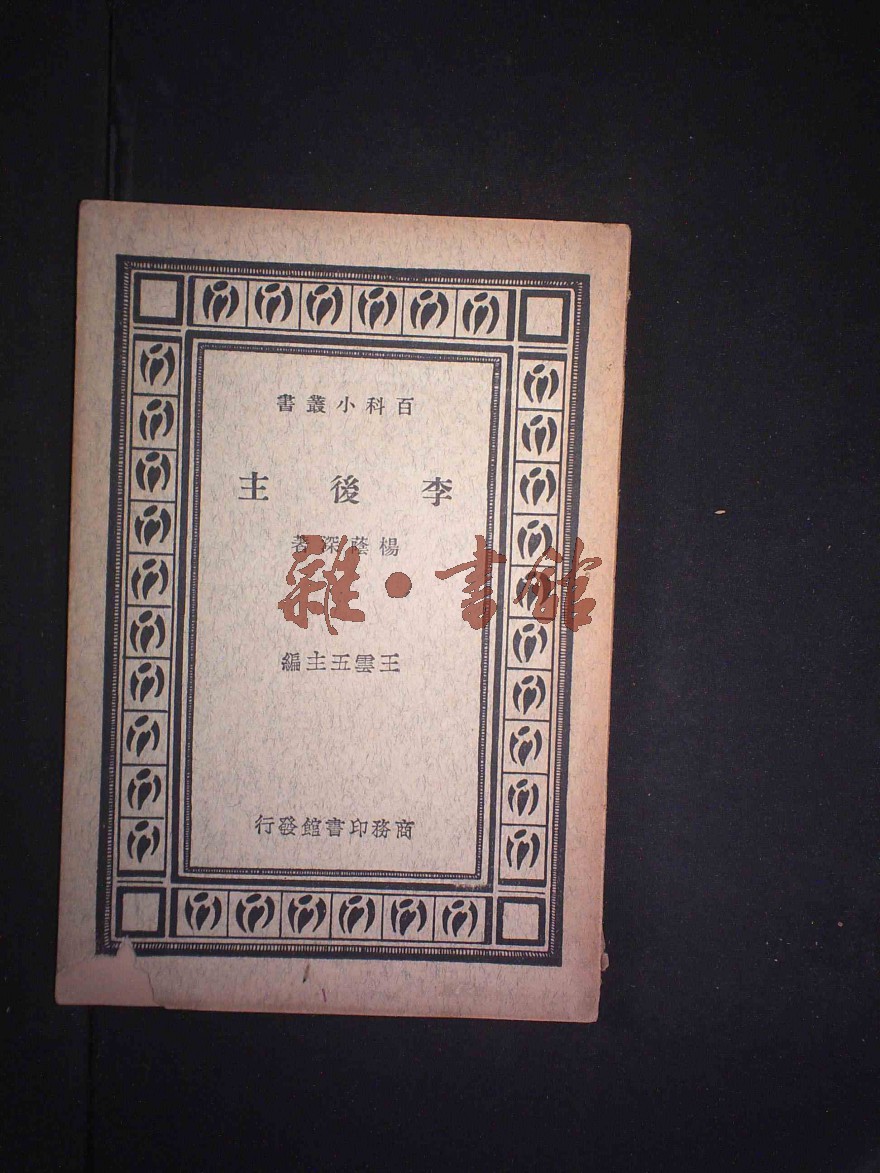 百科小叢書
李後主
楊蔭深著
雜·書館
王雲五主編
商務印書館發行